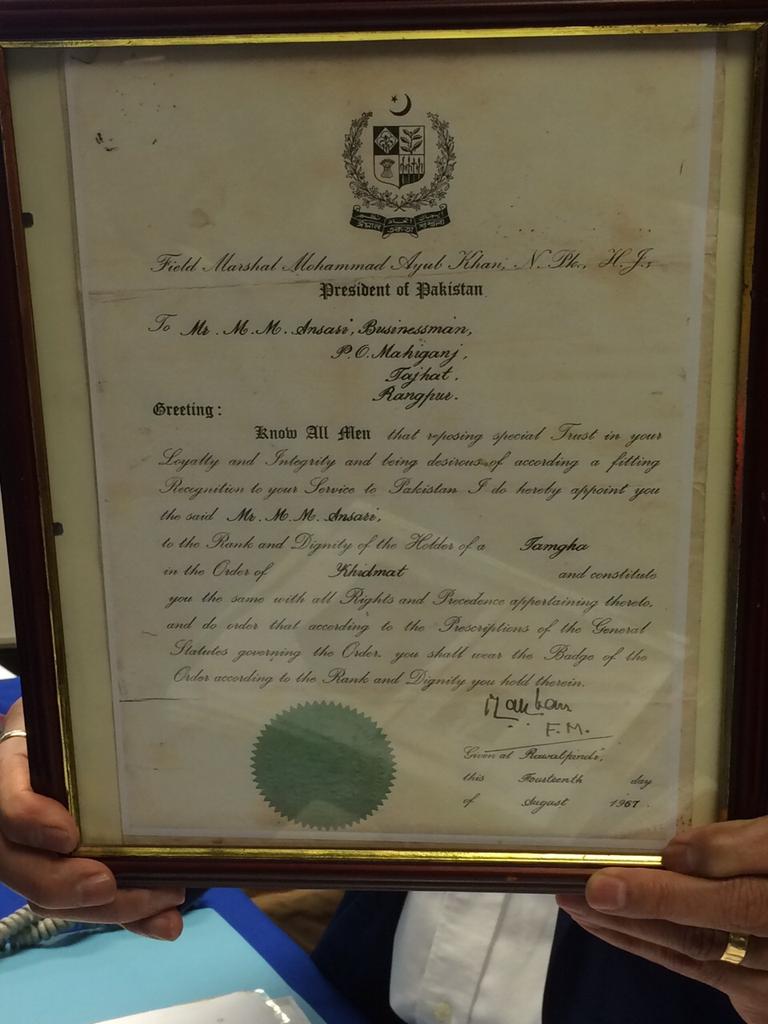 Field Marshal Mohammad Ayub Khan, N. Pk., H. J.,
President of Pakistan
To Mr. M. M. Ansari, Businessman,
P. O. Mahiganj,
Tajhat.
Rangpur.
Greeting:
Know All Men that reposing special Trust in your
Loyalty and Integrity and being desirous of according a fitting
Recognition to your Service to Pakistan I do hereby appoint you
the said Mr. M. M. Ansari,
to the Rank and Dignity of the Holder of a Tamgha
in the Order of Khidmat and constitute
you the same with all Rights and Precedence appertaining thereto,
and do order that according to the Prescriptions of the General
Statutes governing the Order, you shall wear the Badge of the
Order according to the Rank and Dignity you hold therein.
F. M.
Given at Rawalpindi,
this Fourteenth day
of August 1967